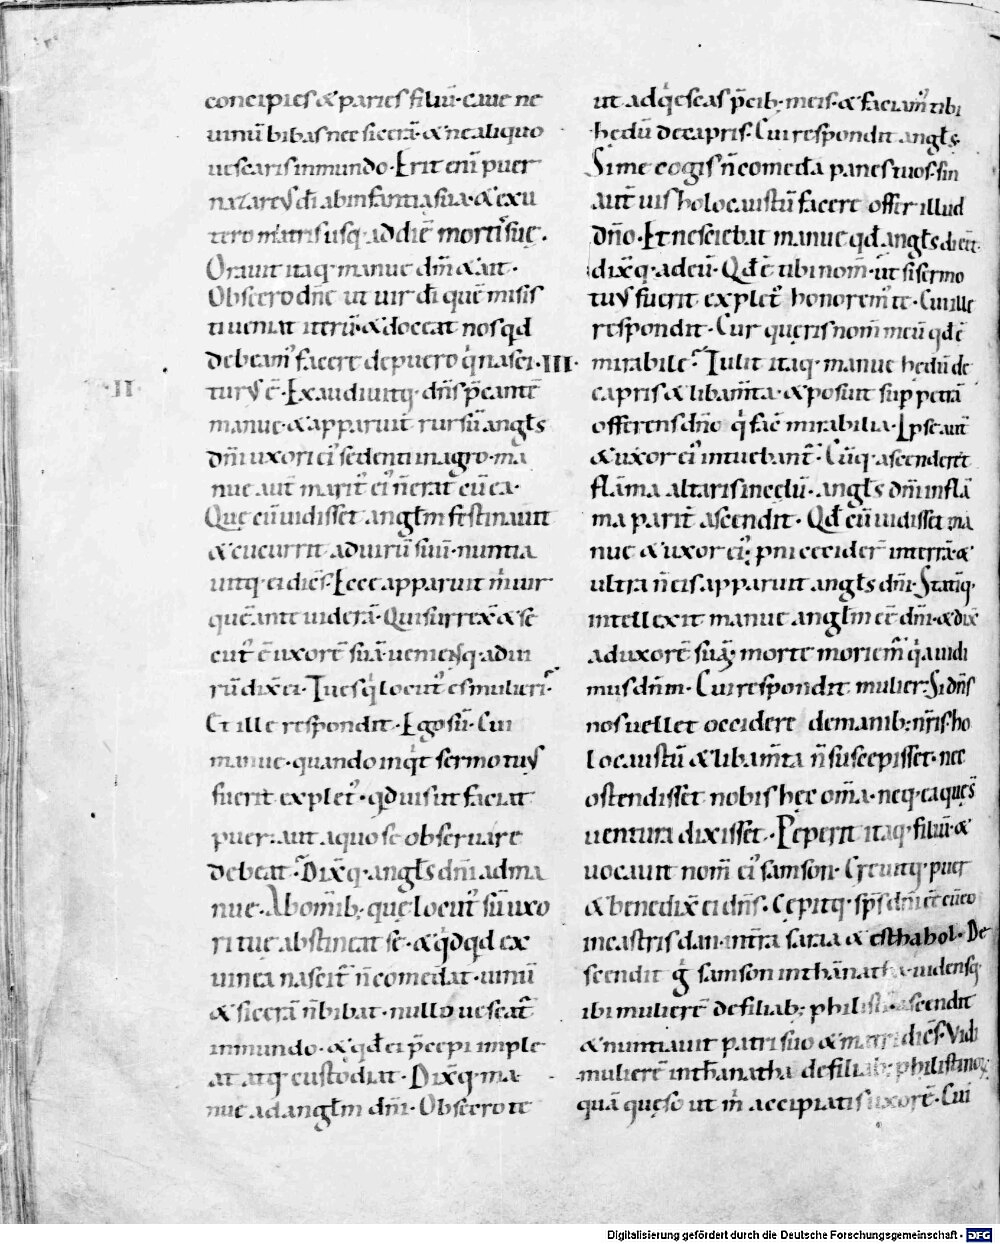 concipies & paries filiū· caue ne
uinū bibas nec sicerā· & ne aliquo
uescaris inmundo· Erit eni puer
nazareꝰ dī ab infantia sua· & exu
tero mr̄atris usq· ad diē mortis suę·
Orauit itaq· manue dn̄m & ait·
Obsecro dn̄e ut uir dī quē misis
ti ueniat iterū· & doceat nos qd
debeamꝰ facere de puero q̇ nasci
·II·
turꝰ ē· Exaudiuitq· dn̄s p̄cantē
manue· & apparuit rursū angl̄s
dn̄i uxori eiꝰ sedenti in agro· ma
nue aut̄ maritꝰ eiꝰ n̄ erat cū ea·
Quę cū uidisset angl̄m festinauit
& cucurrit ad uirū suū· nuntia
uitq· ei dicēs· Ecce apparuit m̄ uir
quē ante uiderā· Qui surrex̄ & se
cutꝰ ē uxorē suā· ueniensq· ad ui
rū dix̄ ei· Tu es q̇ locutꝰ es mulieri·
Et ille respondit· Ego sū· Cui
manue· quando inq̇t sermo tuꝰ
fuerit expletꝰ· qd uis ut faciat
puer· aut a quo se obseruare
debeat· Dix̄q· angl̄s dn̄i ad ma
nue· Ab om̄ib; quę locutꝰ sū uxo
ri tuę abstineat se· & q̇dqd ex
uinea nascit̄ n̄ comedat· uinū
& sicerā n̄ bibat· nullo uescat̄
inmundo· & qd ei p̄cepi imple
at atq· custodiat· Dix̄q· ma
nue ad angl̄m dn̄i· Obsecro te
ut adq̇escas p̄cib; meis· & faciamꝰ tibi
hedū de capris· Cui respondit angl̄s·
Si me cogis n̄ comedā panes tuos· sin
aut̄ uis holocaustū facere offer illud
dn̄o· Et nesciebat manue qd angl̄s dī eēt·
dix̄q· ad eū· Qd ē tibi nom̄· ut si sermo
tuꝰ fuerit expletꝰ honoremꝰ te· Cui ille
respondit· Cur queris nom̄ meū qd ē
·III· mirabile· Tulit itaq· manue hedū de
capris & libam̄ta· & posuit sup petrā
offerens dn̄o q̇ fac̄ mirabilia· Ipse aut̄
& uxor eiꝰ intuebant̄· Cūq· ascenderet
flāma altaris in cęlū· angl̄s dn̄i in flā
ma parit̄ ascendit· Qd cū uidisset ma
nue & uxor eiꝰ; pni cecidert̄ in terrā· &
ultra n̄ eis apparuit angl̄s dn̄i· Statīq·
intellexit manue angl̄m eē dn̄i· & dix̄
ad uxorē suā; morte moriem̄ q̇a uidi
mus dn̄m· Cui respondit mulier· Si dn̄s
nos uellet occidere de manib; nr̄is· ho
locaustū & libam̄ta n̄ suscepisset· nec
ostendisset nobis hęc om̄a· neq· ea quę s̄
uentura dixisset· Peperit itaq· filiū· &
uocauit nom̄ eiꝰ samson· Creuitq· puer
& benedix̄ ei dn̄s· Cępitq· sp̄s dn̄i eē cū eo
in castris dan· int̄ saraa & esthahol· De
scendit g̊ samson in thānatha· uidensq·
ibi mulierē de filiab; philistiī ascendit
& nuntiauit patri suo & matri dicēs· Vidi
mulierē in thānatha de filiab; philistinoꝝ
quā queso ut m̄ accipiatis uxorē· Cui
Digitalisierung gefördert durch die Deutsche Forschungsgemeinschaft - DFG